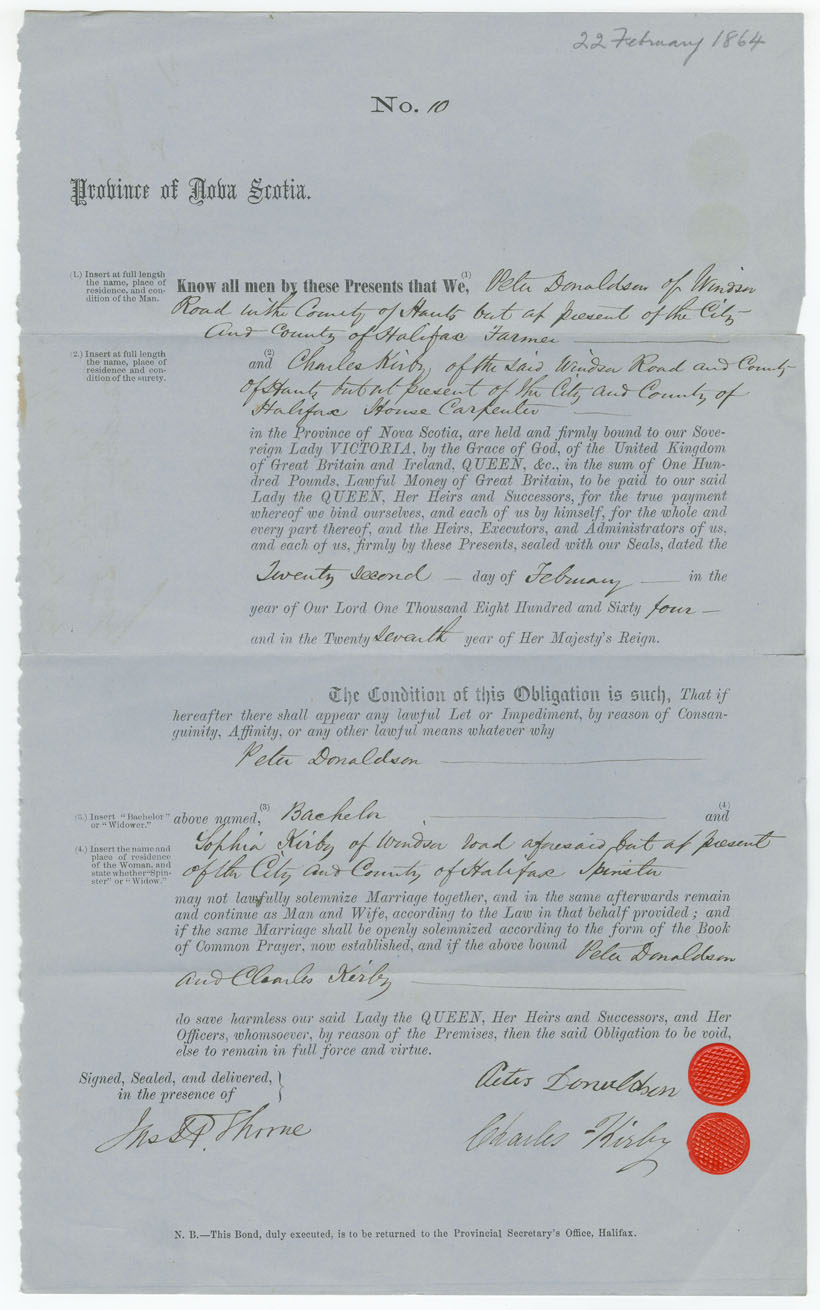 22 February 1864
No. 10
Province of Nova Scotia.
(1.) Insert at full length
the name, place of
residence, and con-
dition of the Man.
Know all men by these Presents that We,(1) Peter Donaldson of Windsor
Road in the County of Hants but at present of the City
and County of Halifax Farmer
(2.) Insert at full length
the name, place of
residence and con-
dition of the surety.
and (2) Charles Kirby, of the said Windsor Road and County
of Hants but at present of the City and County of
Halifax House Carpenter
in the Province of Nova Scotia, are held and firmly bound to our Sove-
reign Lady VICTORIA, by the Grace of God, of the United Kingdom
of Great Britain and Ireland, QUEEN, &c., in the sum of One Hun-
dred Pounds, Lawful Money of Great Britain, to be paid to our said
Lady the QUEEN, Her Heirs and Successors, for the true payment
whereof we bind ourselves, and each of us by himself, for the whole and
every part thereof, and the Heirs, Executors, and Administrators of us,
and each of us, firmly by these Presents, sealed with our Seals, dated the
Twenty second — day of February — in the
year of Our Lord One Thousand Eight Hundred and Sixty four —
and in the Twenty seventh year of Her Majesty's Reign.
The Condition of this Obligation is such, That if
hereafter there shall appear any lawful Let or Impediment, by reason of Consan-
guinity, Affinity, or any other lawful means whatever why
Peter Donaldson
(3.) Insert "Bachelor"
or "Widower."
above named,(3) Bachelor and (4)
(4.) Insert the name and
place of residence
of the Woman, and
state whether "Spin-
ster" or "Widow."
Sophia Kirby of Windsor road aforesaid, but at present
of the City and County of Halifax Spinster
may not lawfully solemnize Marriage together, and in the same afterwards remain
and continue as Man and Wife, according to the Law in that behalf provided; and
if the same Marriage shall be openly solemnized according to the form of the Book
of Common Prayer, now established, and if the above bound Peter Donaldson
and Charles Kirby
do save harmless our said Lady the QUEEN, Her Heirs and Successors, and Her
Officers, whomsoever, by reason of the Premises, then the said Obligation to be void,
else to remain in full force and virtue.
Signed, Sealed, and delivered,
in the presence of
Peter Donaldson
Thorne
Charles Kirby
N. B.—This Bond, duly executed, is to be returned to the Provincial Secretary's Office, Halifax.